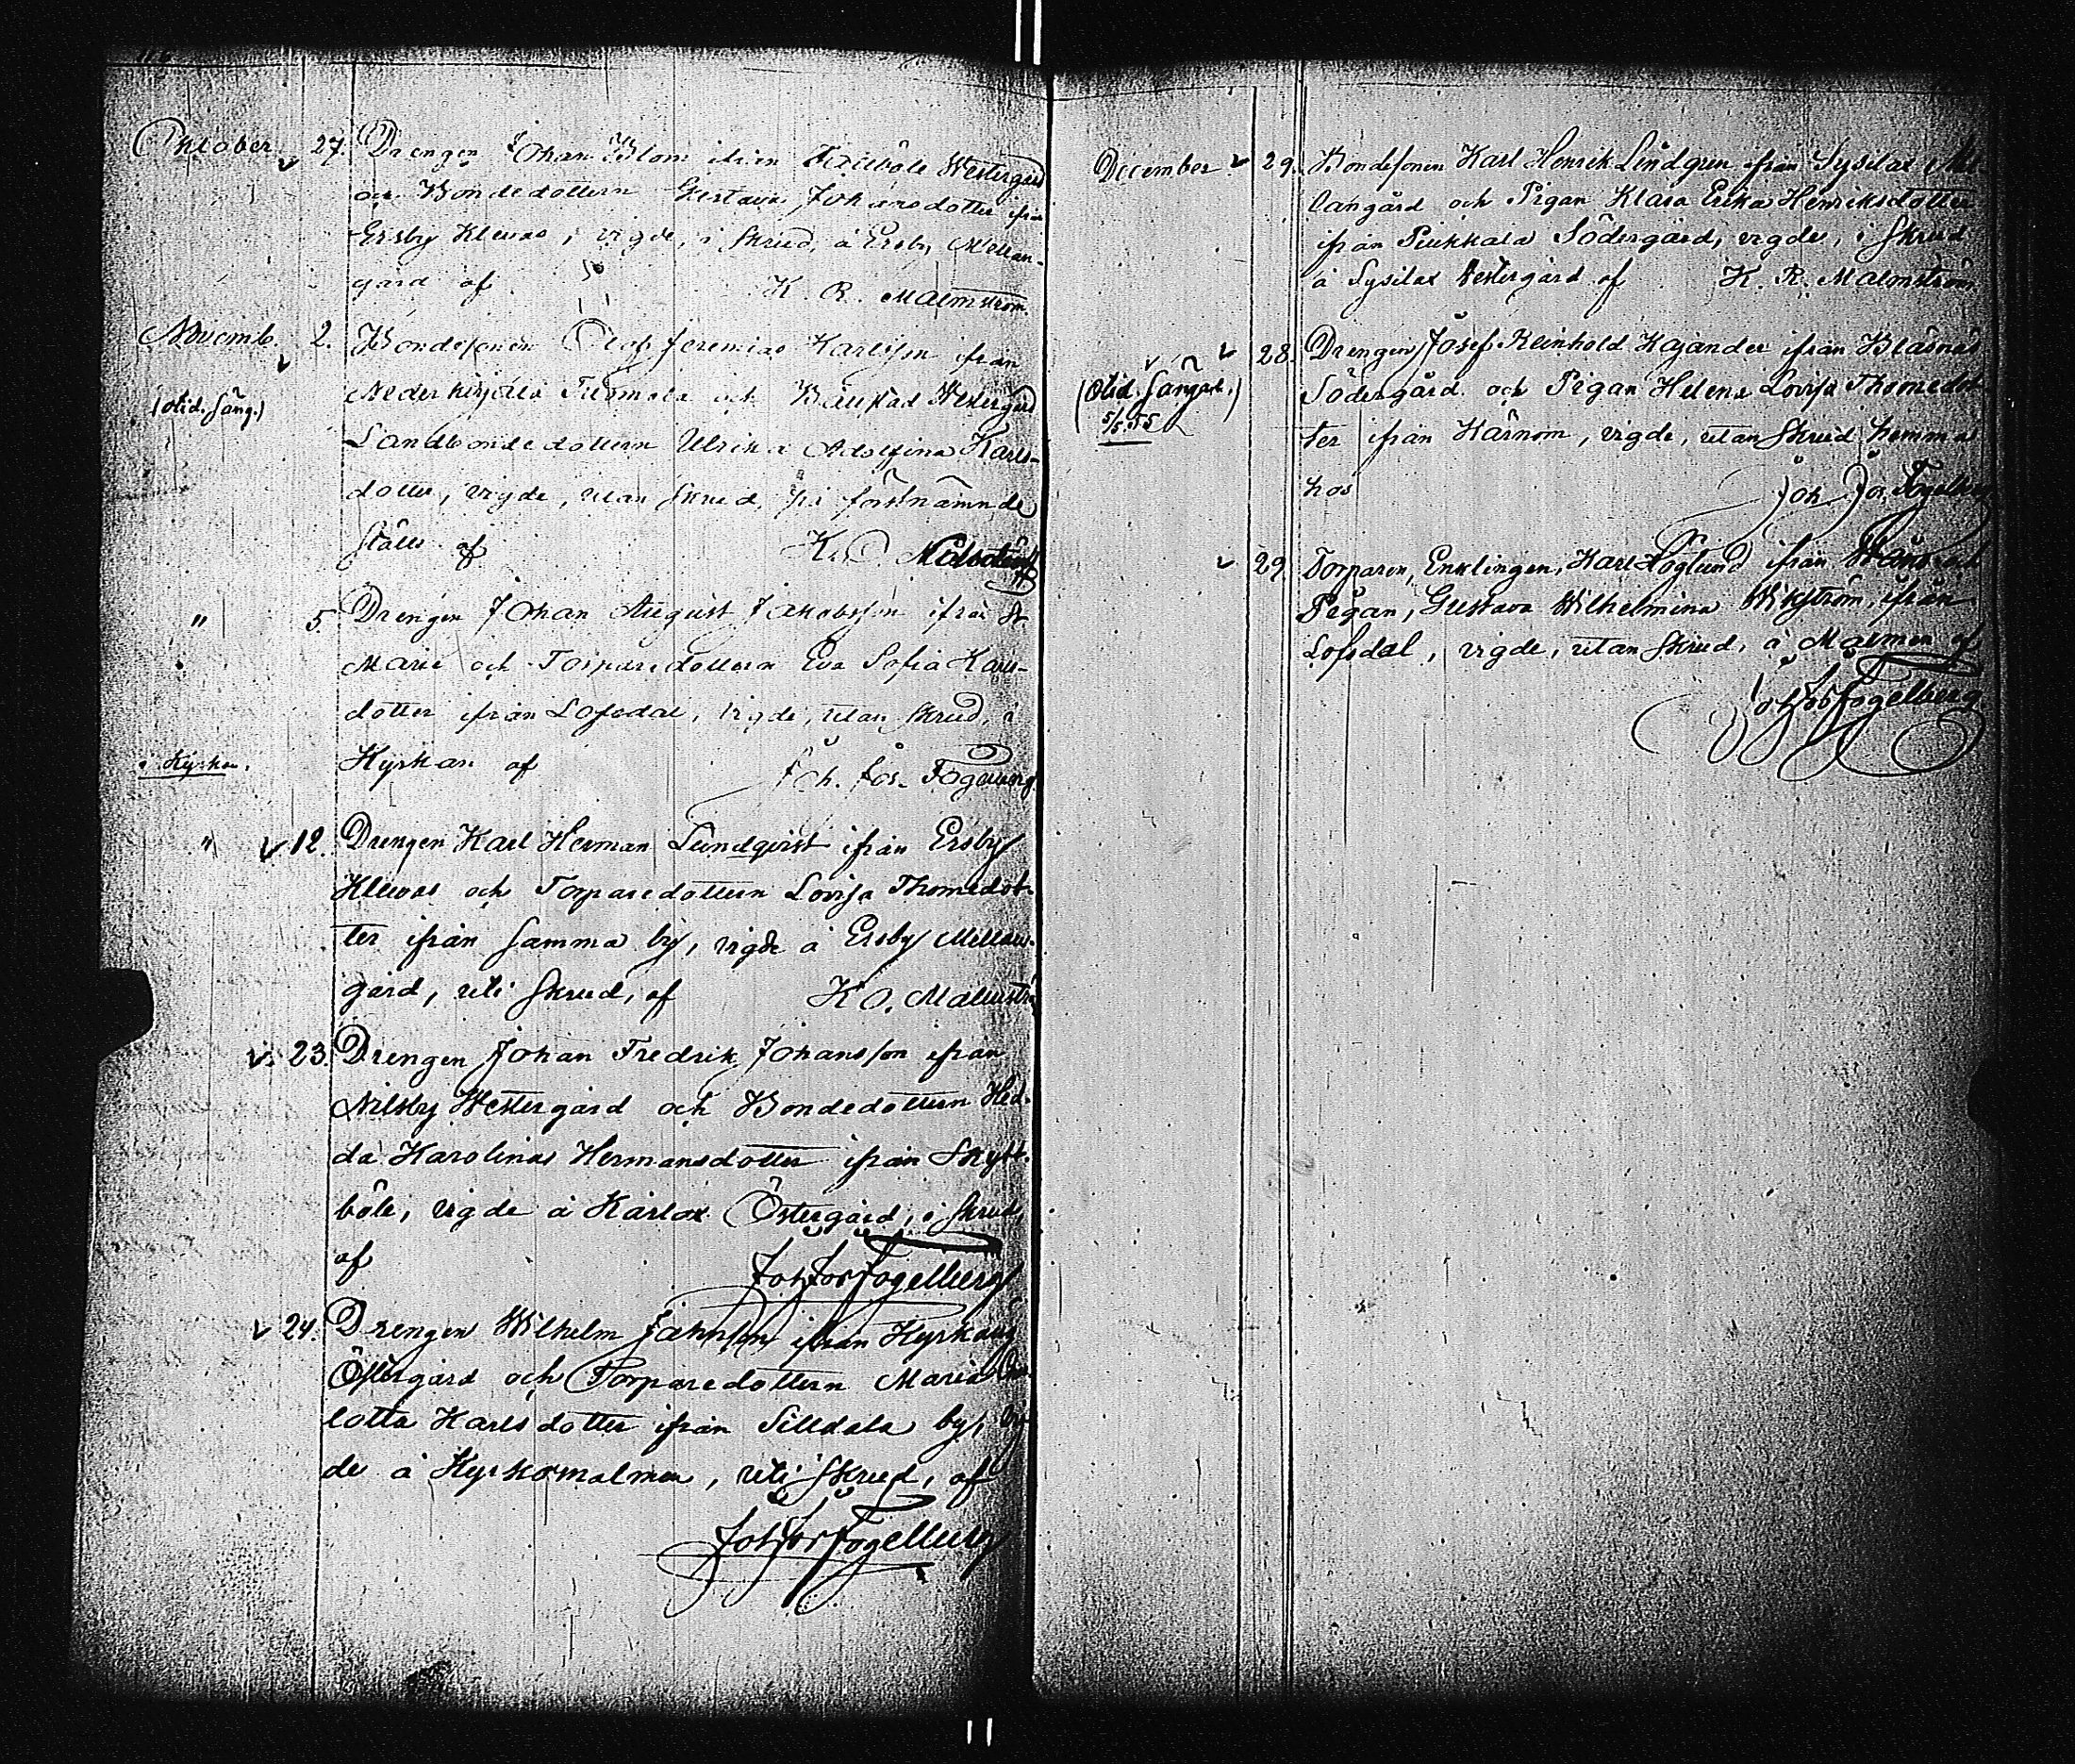 Oktober. 27. Drengen Johan Blom ifrån Westergård
och Bondedottern Gustava Johansdotter ifrån
Ersby Klewas, vigde, i Skrud, å Ersby Mellan-
gård af K. R. Malmström.
Novemb. 2. Bondesonen Olof Jeremias Karlsson ifrån
(otid. säng.) och Westergård
Landbondedottern Ulrika Adolfina Karls-
dotter, vigde, utan Skrud, på förstnämnde
ställe af
" 5. Drengen Johan August Jakobsson ifrån St
Marie och Torparedottern Eva Sofia Karls-
dotter ifrån Lofsdal, vigde, utan Skrud, i
i Kyrkan. Kyrkan af Joh. Jos. Fogelberg
" 12. Drengen Karl Herman Lundqvist ifrån Ersby
Klewas och Torparedottern Lovisa Thomedot-
ter ifrån samma by, vigde å Ersby Mellan-
gård, uti Skrud, af K. O. Malmström
23. Drengen Johan Fredrik Johansson ifrån
Nilsby Westergård och Bondedottern Hed-
da Karolina Hermansdotter ifrån Skytt-
böle, vigde å Kärlax Östergård, i Skrud,
af Joh Jos Fogelberg
24. Drengen Wilhelm Jahnsson ifrån
Östergård och Torparedottern Maria Char-
lotta Karlsdotter ifrån Silldala by, vig-
de å Kyrkomalmen, uti Skrud, af
Joh Jos Fogelberg
December. 29. Bondesonen Karl Henrik Lindgren ifrån Sysilax Mel-
langård och Pigan Klara Erika Henriksdotter
ifrån Pukkala Södergård, vigde, i Skrud
å Sysilax Westergård af K. R. Malmström
28. Drengen Josef Reinhold Kajander ifrån Bläsnäs
(Otid. Sängel.) Södergård och Pigan Helena Lovisa Thomedot-
5/5 55 ter ifrån Kärnom, vigde, utan Skrud hemma
hos Joh Jos. Fogelberg
29. Torparen, Enklingen, Karl Höglund ifrån och
Pigan, Gustava Wilhelmina Wikström, ifrån
Lofsdal, vigde, utan Skrud, å Malmen af
Joh Jos Fogelberg